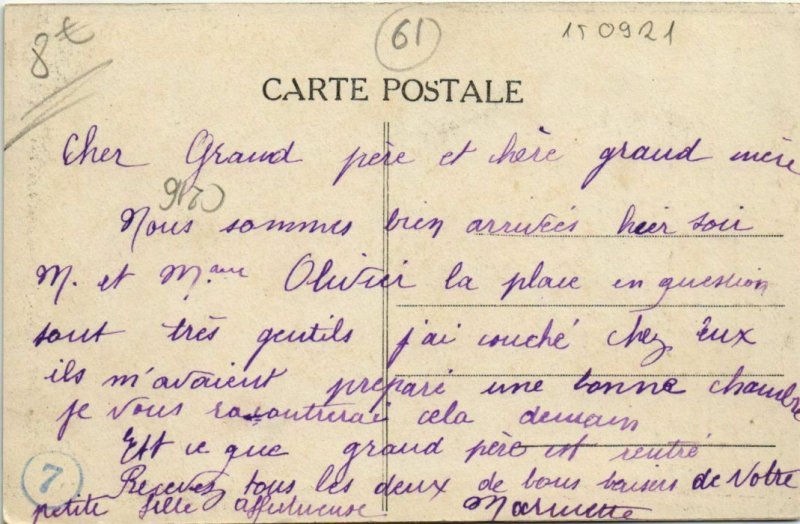 8€
61
150921
CARTE POSTALE
Cher Grand père et chère grand mère
C216
Nous sommes bien arrivées hier soir
M. et Mame Olivier la place en question
sont très gentils j'ai couché chez Eux
ils m'avaient preparé une bonne chambre
je vous racontrerai cela demain
Est ce que grand père est rentré
Recevez tous les deux de bons baisers de Votre
petite fille affectueuse
7